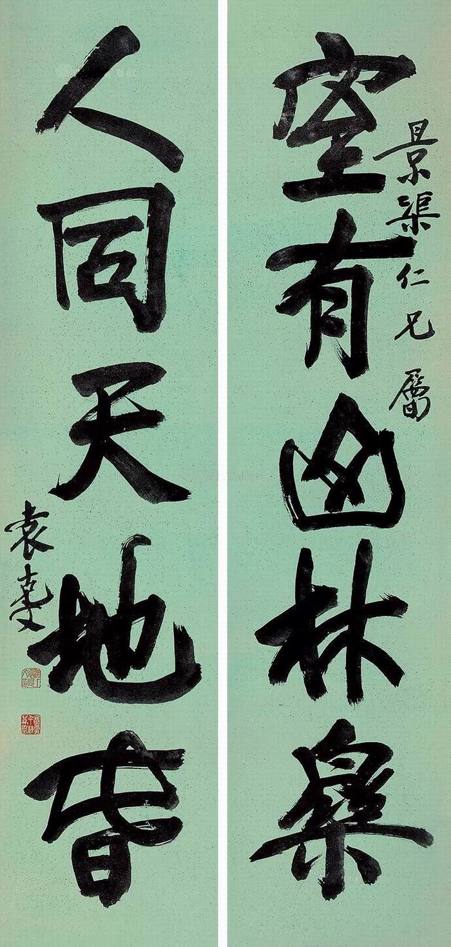 室有山林樂
景渠仁兄屬
人同天地春
袁克文